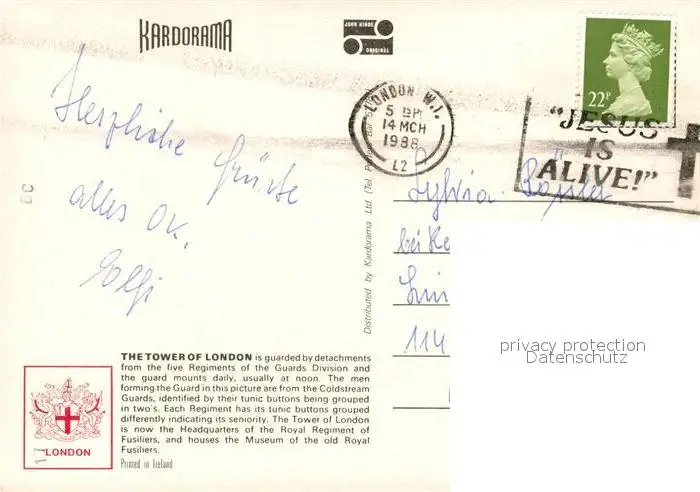 KARDORAMA
JOHN HINDE
ORIGINAL
22P
LONDON W.1.
5 PM
14 MCH
1988
L2
"JESUS
IS
ALIVE!"
Herzliche Grüße
alles OK.
Elfi
Sylvia
bei
114
Distributed by Kardorama Ltd. (Tel. Potters Bar
privacy protection
Datenschutz
THE TOWER OF LONDON is guarded by detachments
from the five Regiments of the Guards Division and
the guard mounts daily, usually at noon. The men
forming the Guard in this picture are from the Coldstream
Guards, identified by their tunic buttons being grouped
in two's. Each Regiment has its tunic buttons grouped
differently indicating its seniority. The Tower of London
is now the Headquarters of the Royal Regiment of
Fusiliers, and houses the Museum of the old Royal
Fusiliers.
Printed in Ireland
LONDON